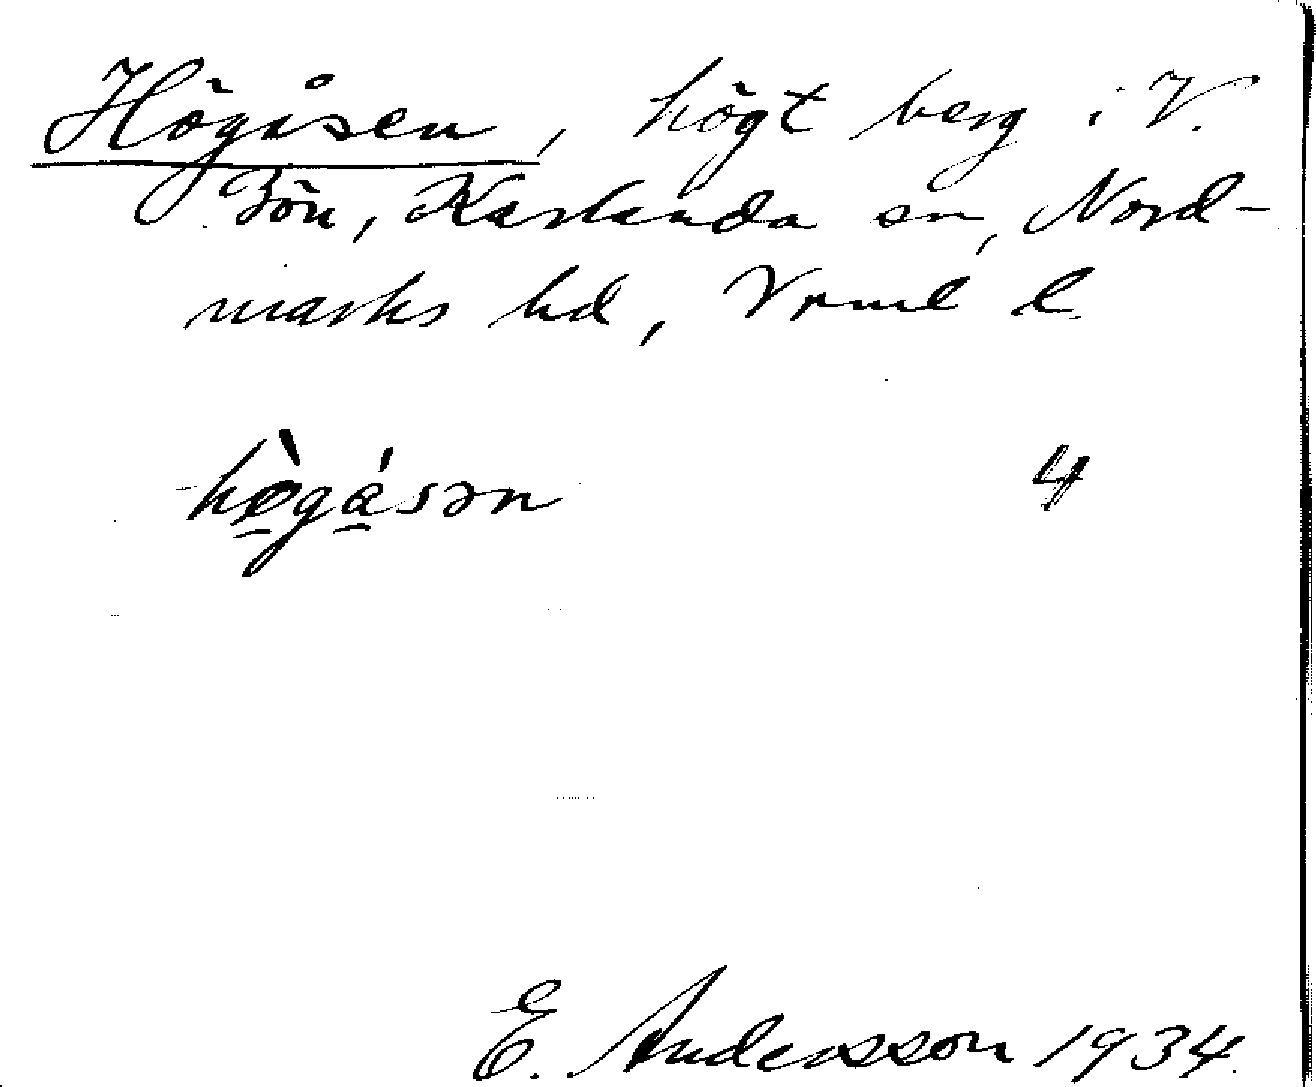 Högåsen, högt berg i V.
Bön, Karlanda sn, Nord-
marks hd, Vrml l.
hø̀gásən 4
E. Andersson 1934.